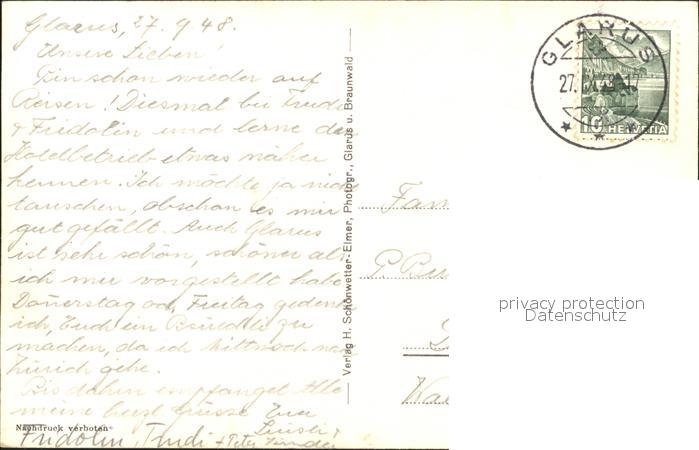 Glarus, 27. 9. 48.
Unsere Lieben!
Bin schon wieder auf
Reisen! Diesmal bei Trudi
& Fridolin und lerne den
Hotelbetrieb etwas näher
kennen. Ich möchte ja nicht
tauschen, obschon es mir
gut gefällt. Auch Glarus
ist sehr schön, schöner als
ich mir vorgestellt habe.
Donerstag od. Freitag gedenke
ich, Euch ein Bsüechli zu
machen, da ich Mittwoch nach
Zürich gehe.
Bis dahin empfanget Alle
meine herzl. Grüsse Eure
Fridolin, Trudi + Peter
Nachdruck verboten
Verlag H. Schönwetter-Elmer, Photogr., Glarus u. Braunwald
GLARUS
27. IX. 48-17
10 HELVETIA
Fam
privacy protection
Datenschutz